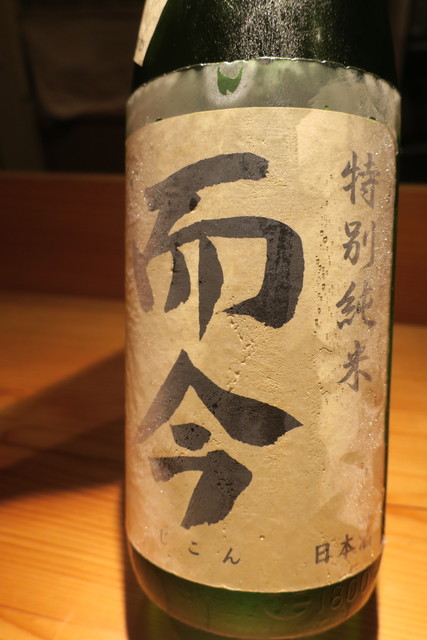 特別純米
而今
じこん
日本
1800